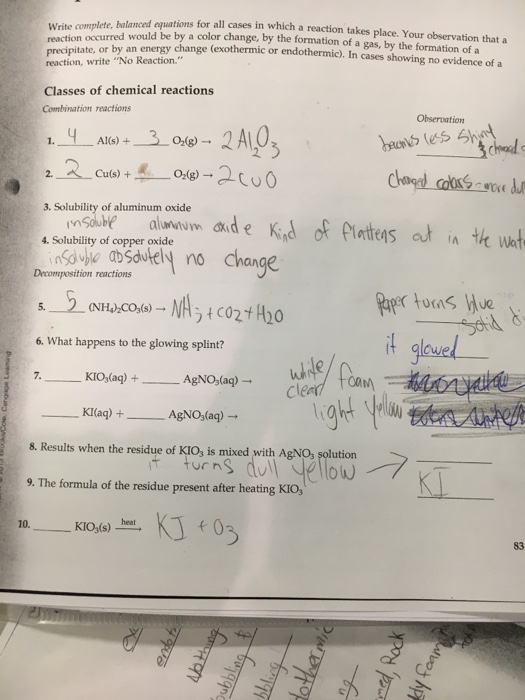 Write complete, balanced equations for all cases in which a reaction takes place. Your observation that a
reaction occurred would be by a color change, by the formation of a gas, by the formation of a
precipitate, or by an energy change (exothermic or endothermic). In cases showing no evidence of a
reaction, write "No Reaction."
Classes of chemical reactions
Combination reactions
Observation
1. 4 Al(s) + 3 O₂(g) → 2 Al₂O₃
less shiny
2. 2 Cu(s) + O₂(g) → 2CuO
Changed colors - more
3. Solubility of aluminum oxide
insoluble aluminum oxide kind of flattens out in the
4. Solubility of copper oxide
insoluble absolutely no change
Decomposition reactions
5. 5 (NH₄)₂CO₃(s) → NH₃ + CO2 + H2O
Paper turns blue
solid
6. What happens to the glowing splint?
it glowed
7. KIO₃(aq) + AgNO₃(aq) →
white/
clear/ foam
KI(aq) + AgNO₃(aq) →
light yellow
8. Results when the residue of KIO₃ is mixed with AgNO₃ solution
it turns dull yellow →
9. The formula of the residue present after heating KIO₃
KI
10. KIO₃(s) heat → KI + O3
83
Nothing
Rock